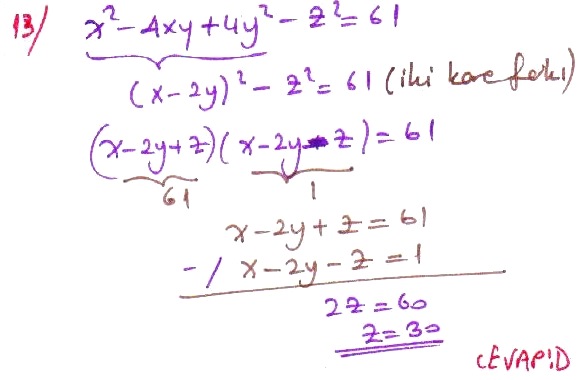 13/ x² - 4xy + 4y² - z² = 61
(x - 2y)² - z² = 61 (iki kare farkı)
(x - 2y + z)(x - 2y - z) = 61
61 1
x - 2y + z = 61
-/ x - 2y - z = 1
2z = 60
z = 30
CEVAP:D